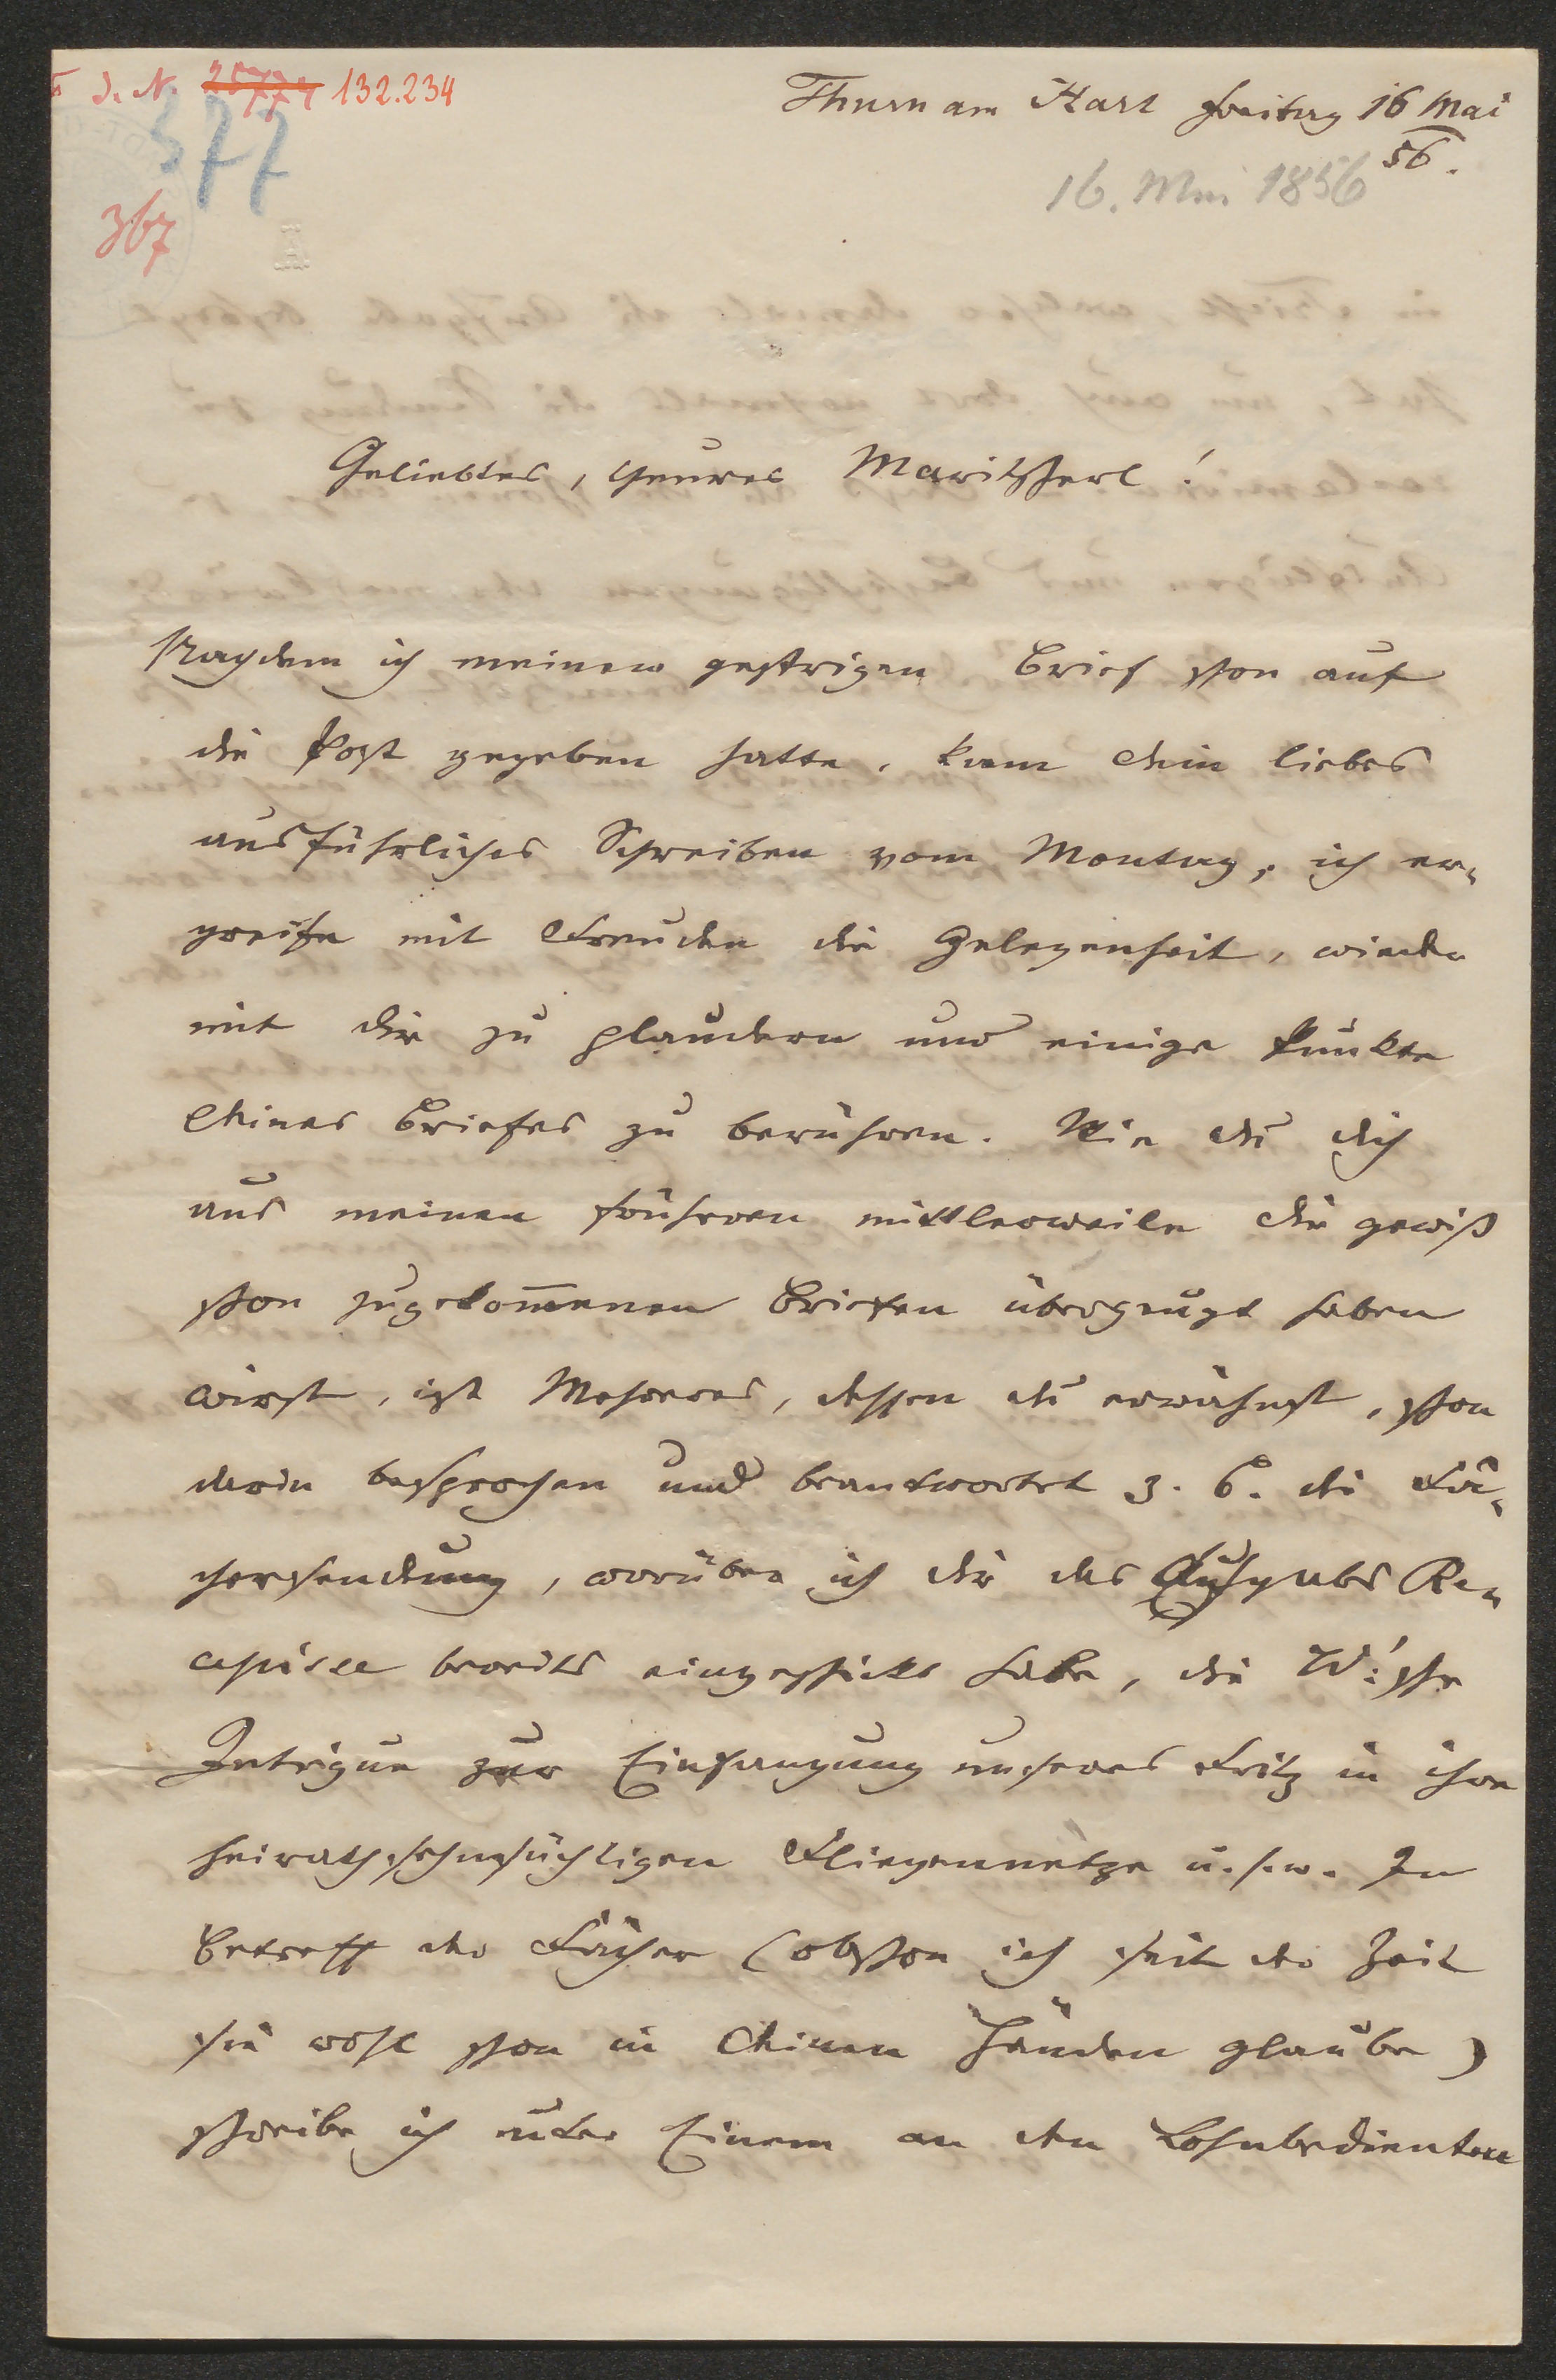 I. N. 25774 132.234
Thurn am Hart Freitag 16 Mai
56.
16. Mai 1856
577
367
Geliebtes, theures Maritscherl!
Nachdem ich meinen gestrigen Brief schon auf
die Post gegeben hatte, kam Dein liebes
ausführliches Schreiben vom Montag; ich er-
greife mit Freuden die Gelegenheit, wieder
mit dir zu plaudern und einige Punkte
Deines Briefes zu berühren. Wie du dich
aus meinen früheren mittlerweile dir gewiß
schon zugekom̅enen Briefen überzeugt haben
wirst, ist Mehreres, dessen du erwähnst, schon
darin besprochen und beantwortet z. B. die Fä-
chersendung, worüber ich dir das Aufgabs Re-
cepisse bereits eingeschickt habe, die W:'sche
Intrigue zur Einfangung unseres Fritz in ihre
heirathssehnsüchtigen Fliegennetze u.s.w. In
Betreff der Fächer (obschon ich seit der Zeit
sie wohl schon in Deinen Händen glaube)
schreibe ich unter Einem an den Lohnbedienten